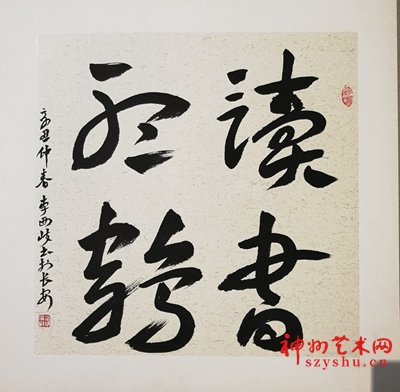 讀書
聽鶴
辛丑仲春李西岐書於長安
神州艺术网
szyshu.com